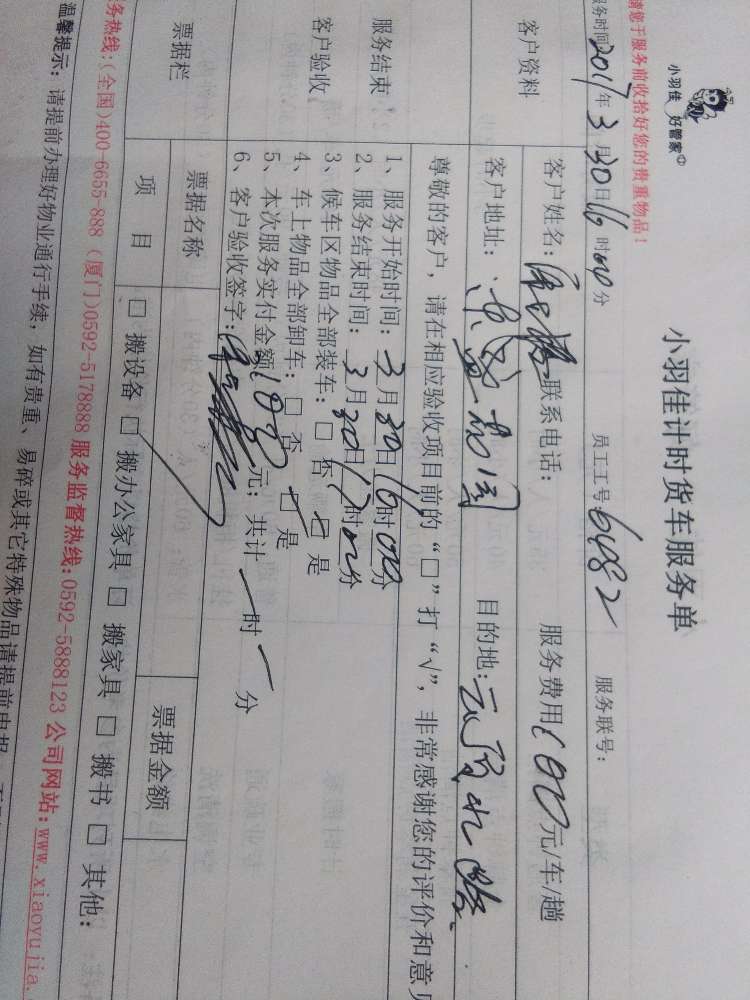 小羽佳 好管家
小羽佳计时货车服务单
请您于服务前收拾好您的贵重物品！
服务时间2017年3月30日16时00分 员工工号6082 服务联号：
客户资料
客户姓名： 联系电话： 服务费用100元/车/趟
客户地址： 目的地：
尊敬的客户，请在相应验收项目前的“□”打“√”，非常感谢您的评价和意见
服务结束
客户验收
1、服务开始时间：3月30日16时00分
2、服务结束时间：3月30日17时00分
3、候车区物品全部装车：□ 否 □ 是
4、车上物品全部卸车：□ 否 □ 是
5、本次服务实付金额100元；共计一时一分
6、客户验收签字：
票据栏
票据名称 票据金额
项 目 □ 搬设备 □ 搬办公家具 □ 搬家具 □ 搬书 □ 其他：
务热线：(全国)400-6655-888 (厦门)0592-5178888 服务监督热线：0592-5888123 公司网站：www.xiaoyujia.
温馨提示：请提前办理好物业通行手续，如有贵重、易碎或其它特殊物品请提前申报，